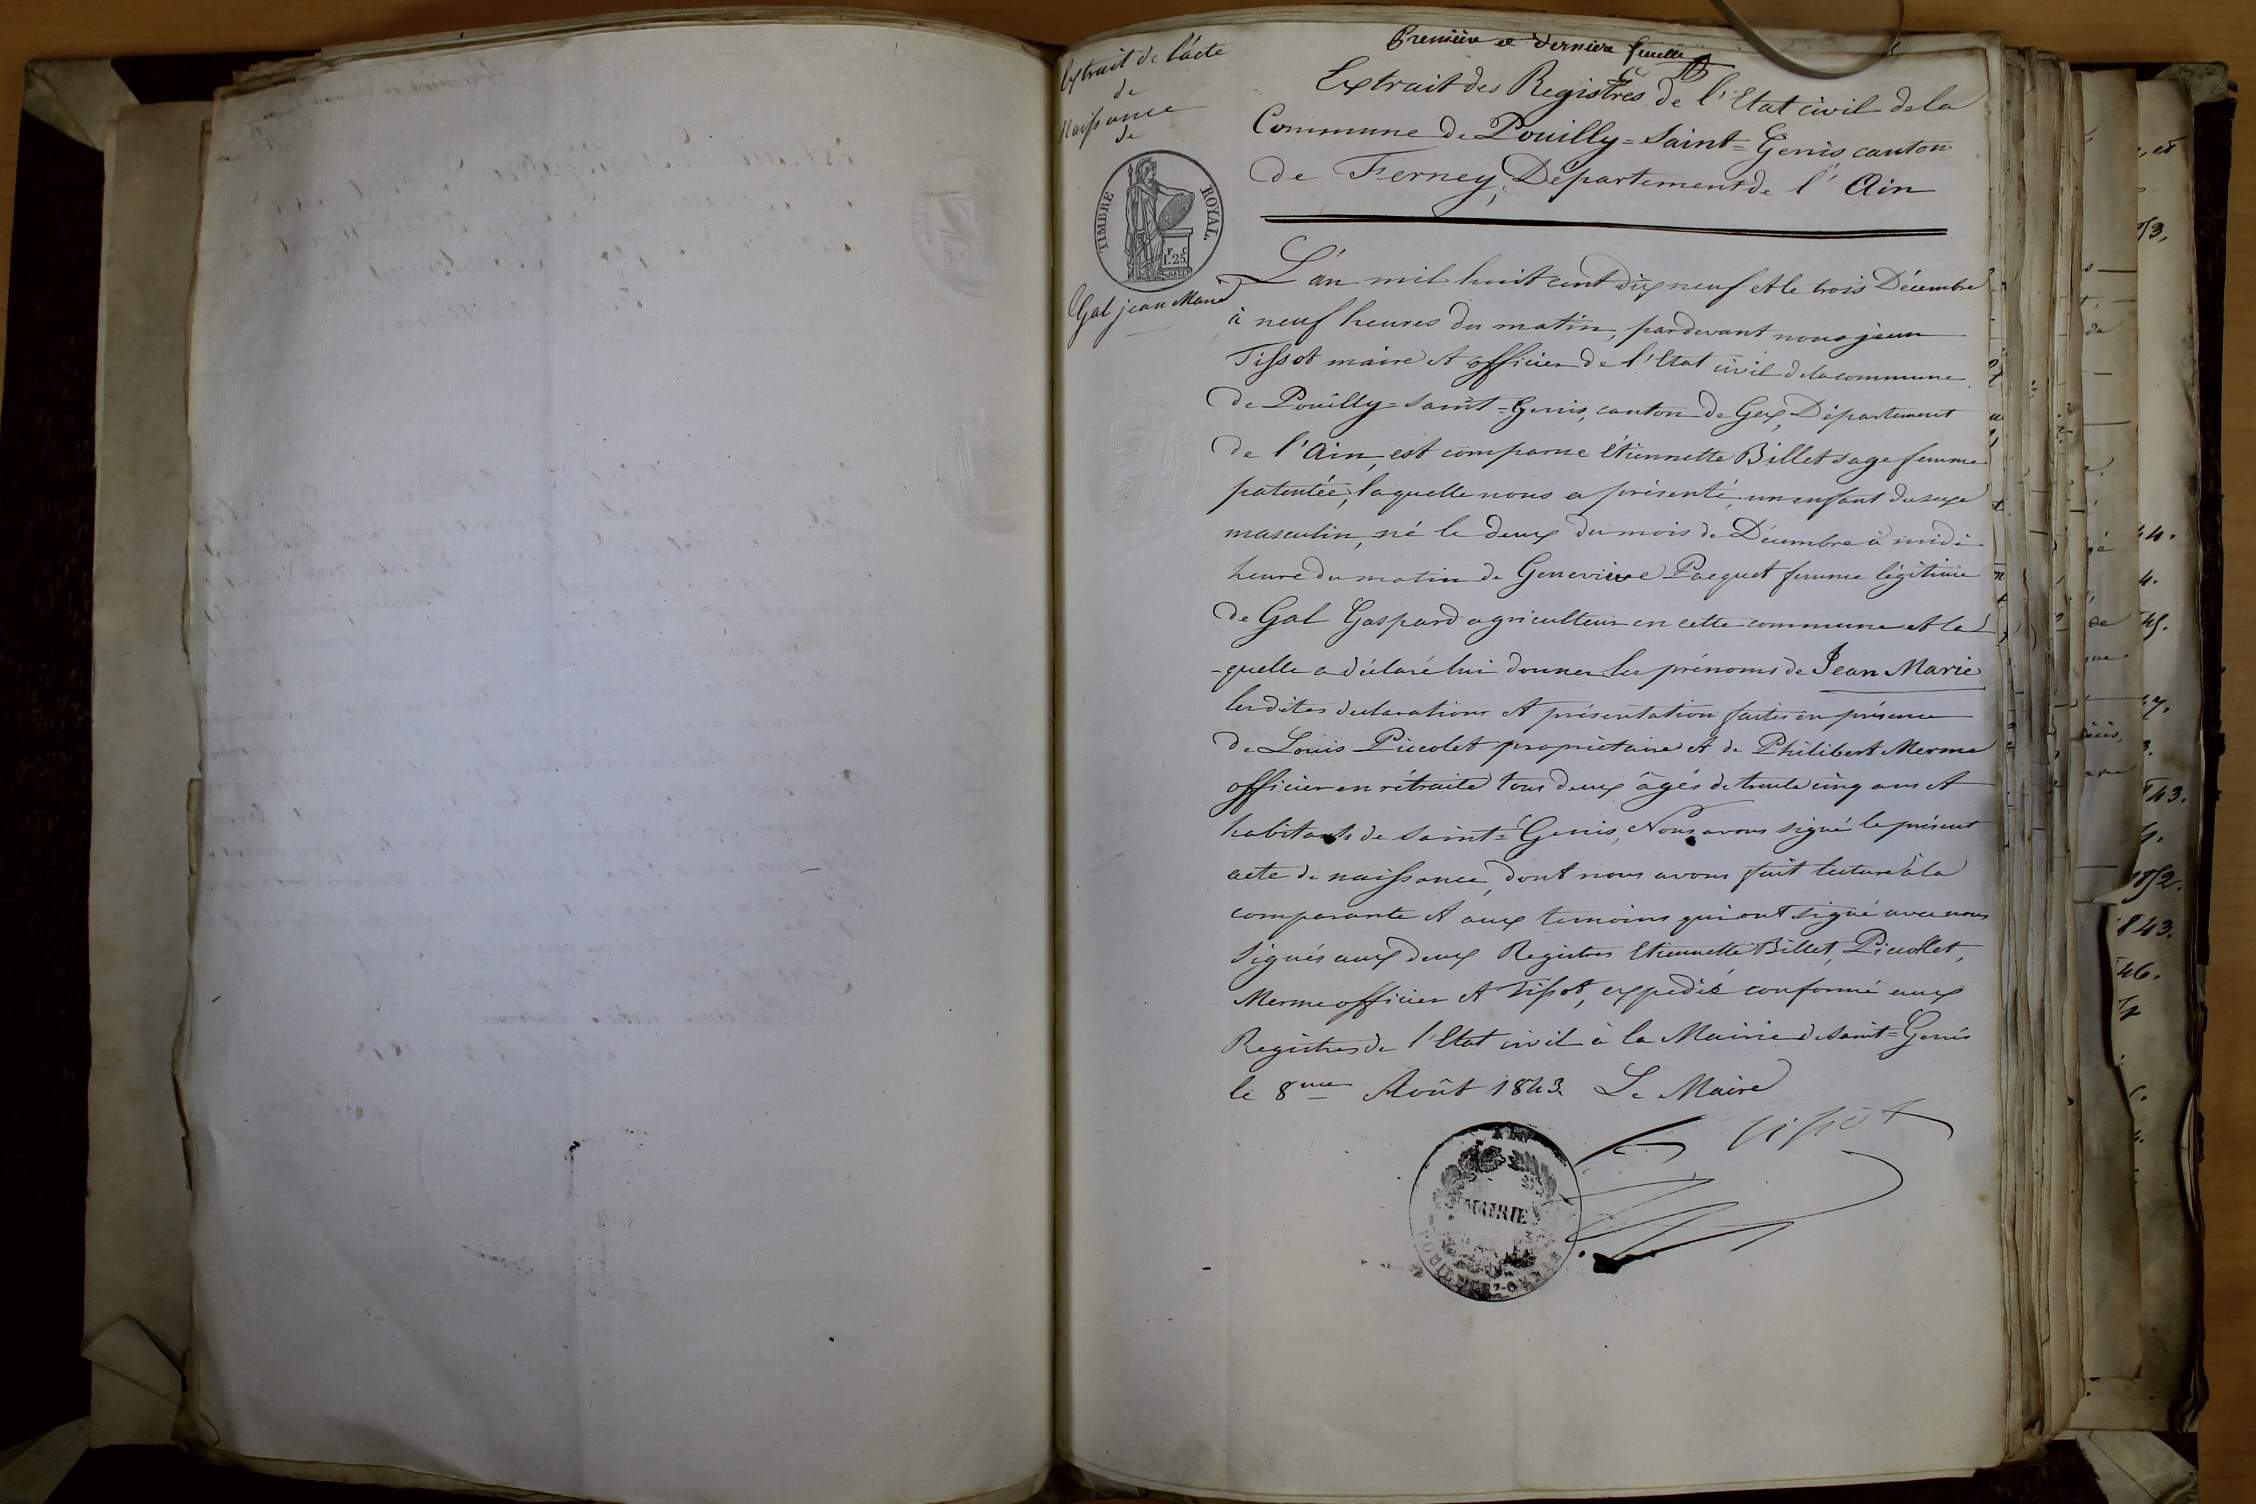 Première et dernière feuille
Extrait de l'acte
de
Naissance
de
TIMBRE ROYAL.
F. C.
1.25
Gal jean Marie
Extrait des Registres de l'Etat civil de la
Commune de Pouilly=Saint=Genis canton
de Ferney, Département de l'Ain
L'an mil huit cent dix neuf et le trois Décembre
à neuf heures du matin, pardevant nous jean
Tissot maire et officier de l'Etat civil de la commune
de Pouilly=Saint=Genis, canton de Gex, Département
de l'Ain, est comparue Etiennette Billet sage femme
patentée, laquelle nous a présenté, un enfant du sexe
masculin, né le deux du mois de Décembre à midi
heure du matin de Geneviève Paequet femme légitime
de Gal Gaspard agriculteur en cette commune et la
-quelle a déclaré lui donner les prénoms de Jean Marie
les dites declarations et présentation faites en présence
de Louis Piccolet propriétaire et de Philibert Merme
officier en rétraite tous deux âgés de trente cinq ans et
habitants de Saint=Genis, Nous avons signé le présent
acte de naissance, dont nous avons fait lecture à la
comparante et aux temoins qui ont signé avec nous
Signés aux deux Registres Etiennette Billet, Piccolet,
Merme officier et Tissot, expédié conforme aux
Registres de l'Etat civil à la Mairie de Saint=Genis
le 8me Août 1843. Le Maire
Tissot
AIN
MAIRIE
, et
44.
4.
45.
43.
1852.
1843.
46.